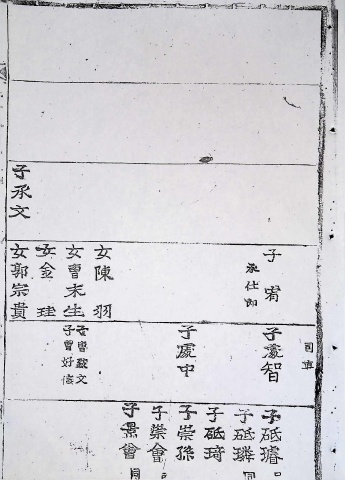 子甯
承仕郎
女陳羽
女曹末生
女金珪
女郭宗貴
子承文
司宰
子處智
子處中
女曹敬文
子曹好信
子砥
子砥
子砥琦
子崇孫
子榮會
子景曾
同